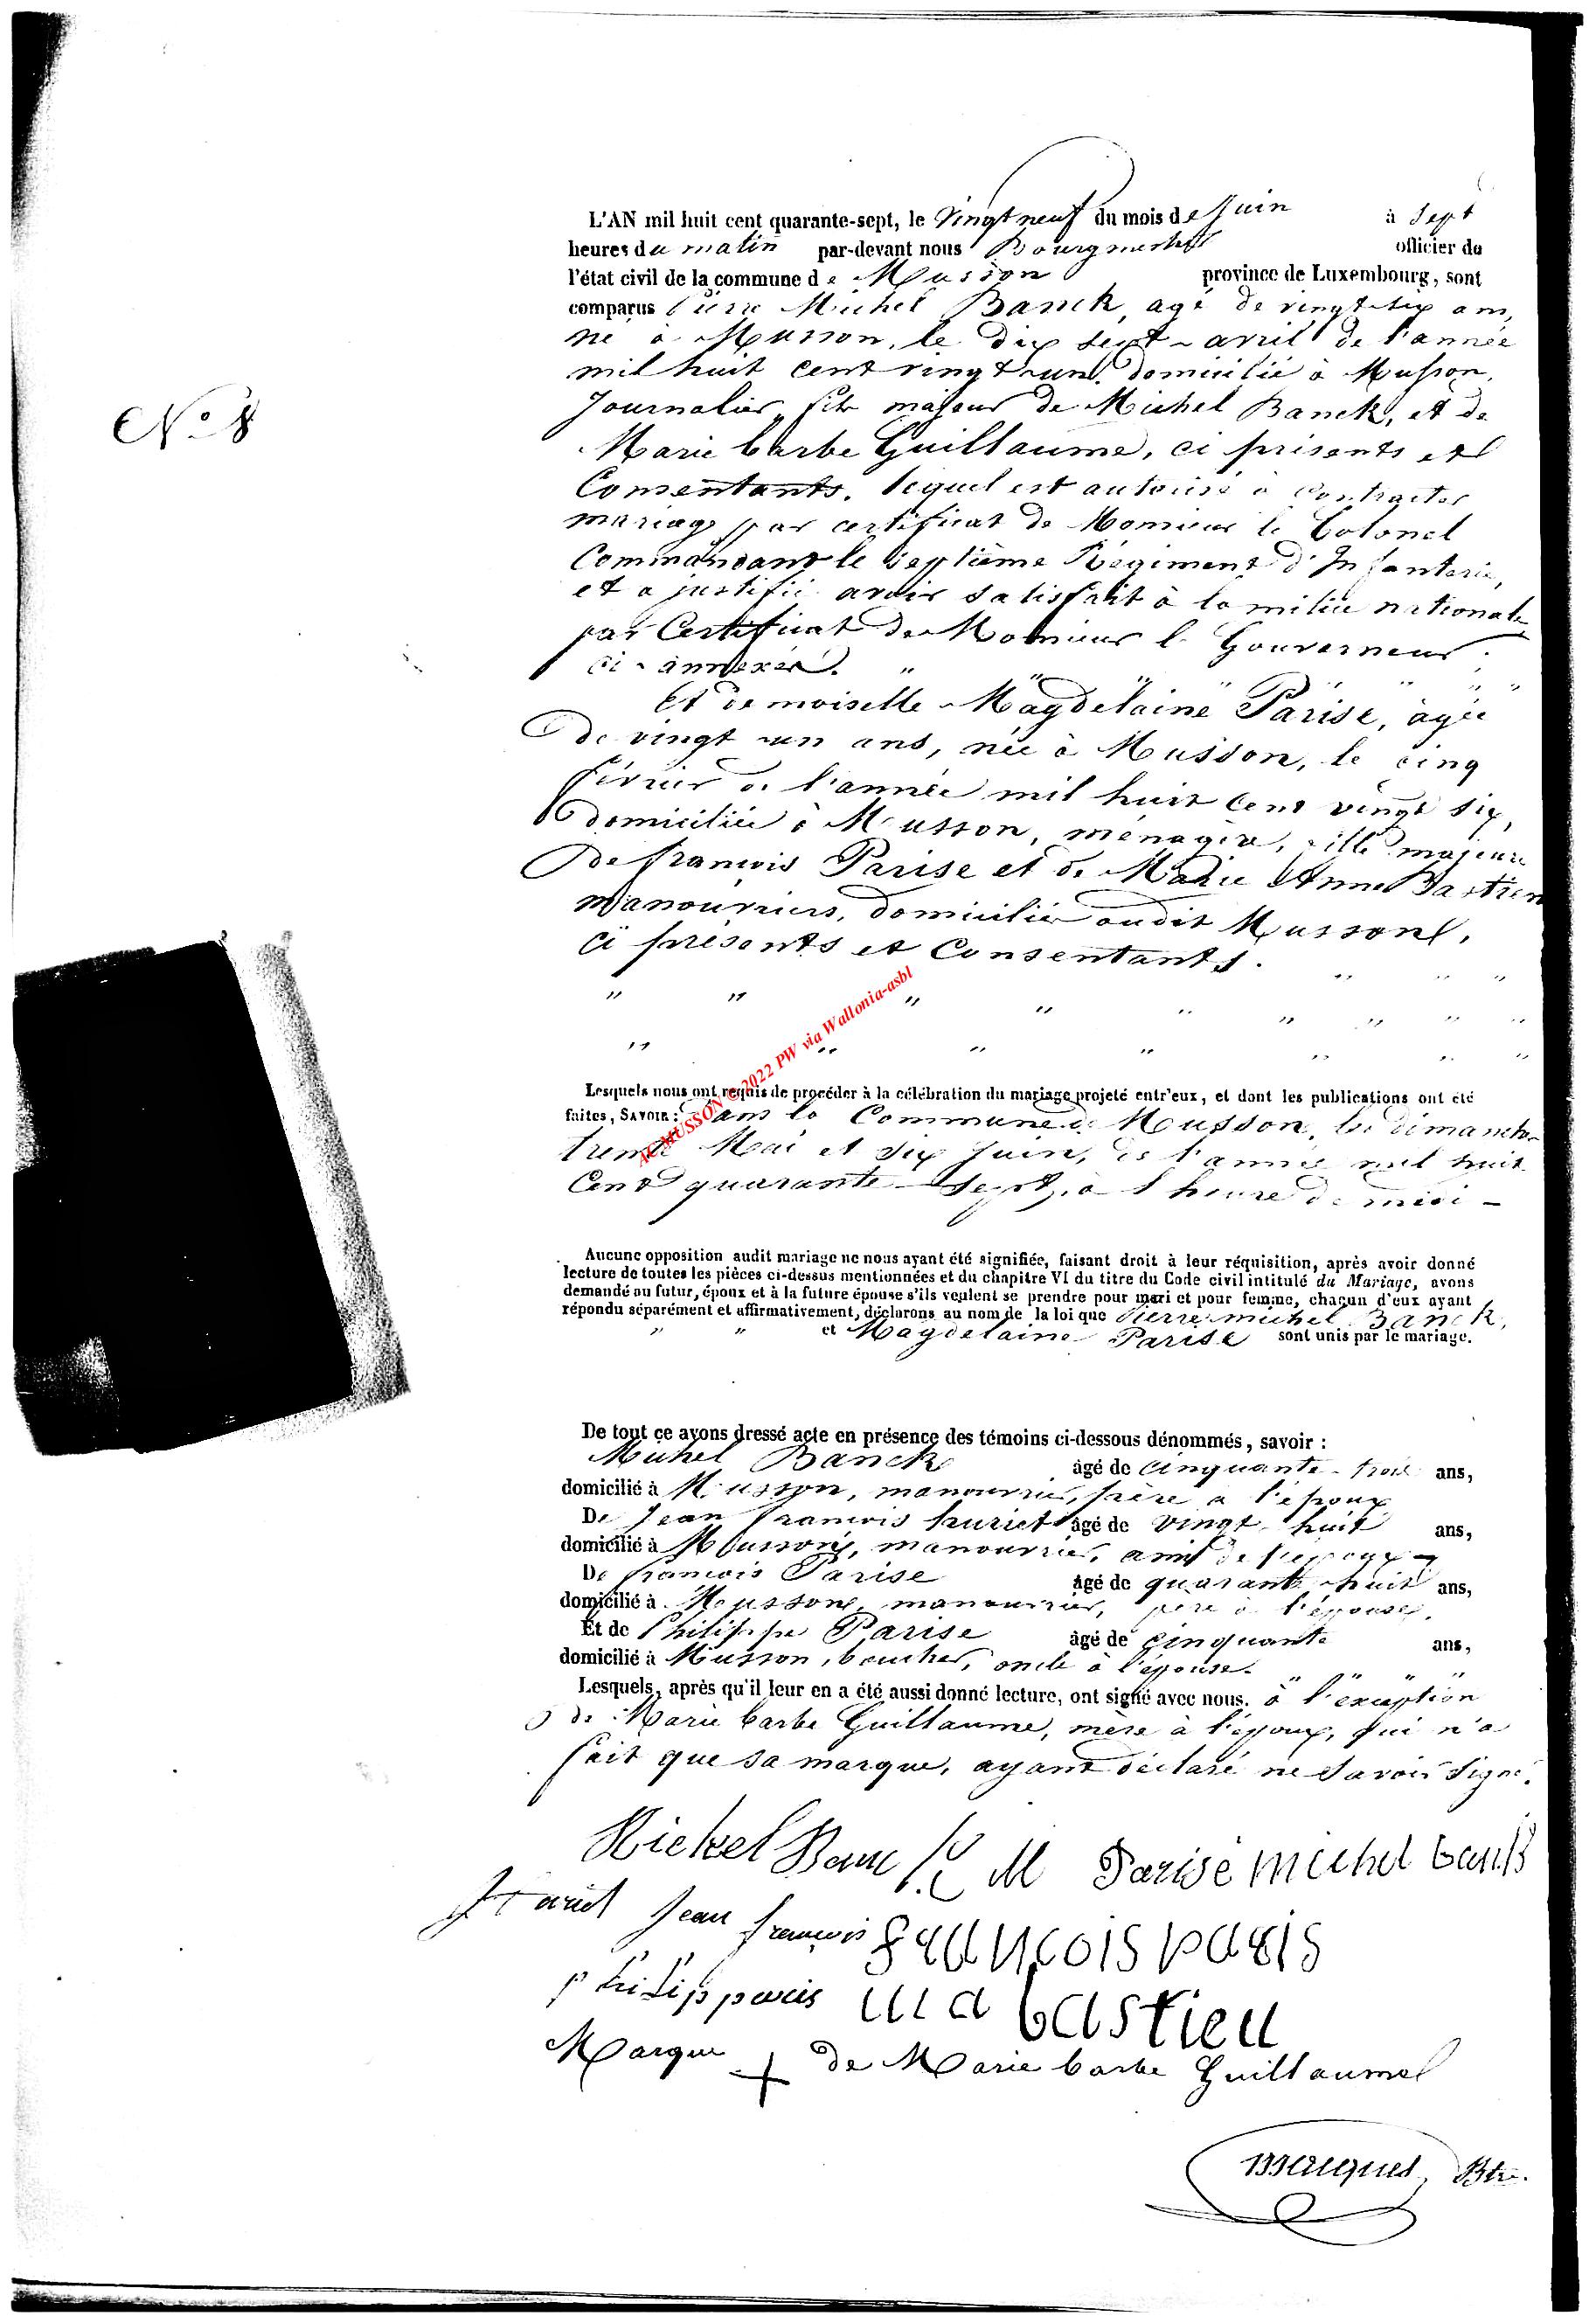 L'AN mil huit cent quarante-sept, le vingt neuf du mois de Juin à Sept
heures du matin par-devant nous Bourgmestre officier de
l'état civil de la commune de Musson province de Luxembourg, sont
comparus Pierre Michel Banck, agé de vingt-six ans,
né à Musson, le dix sept avril de l'année
mil huit cent vingt-un, domicilié à Musson,
N° 8
Journalier, fils majeur de Michel Banck, et de
Marie barbe Guillaume, ci présents et
Consentants. lequel est autorisé à contracter
mariage par certificat de Monsieur le Colonel
Commandant le septième Régiment d'Infanterie,
et a justifié avoir satisfait à la milice nationale
par Certificat de Monsieur le Gouverneur
ci-annexés. "
Et demoiselle Magdelaine Parise, agée
de vingt-un ans, née à Musson, le cinq
février de l'année mil huit cent vingt six,
domiciliée à Musson, ménagère, fille majeure
de françois Parise et de Marie Anne Bastien
manouvriers, domiciliés audit Musson,
ci présents et Consentants.
AC MUSSON © 2022 PW via Wallonia-asbl
Lesquels nous ont requis de procéder à la célébration du mariage projeté entr'eux, et dont les publications ont été
faites, SAVOIR: Dans la Commune de Musson, les dimanches
trente Mai et six Juin, de l'année mil huit
Cent quarante-sept, à l'heure de midi -
Aucune opposition audit mariage ne nous ayant été signifiée, faisant droit à leur réquisition, après avoir donné
lecture de toutes les pièces ci-dessus mentionnées et du chapitre VI du titre du Code civil intitulé du Mariage, avons
demandé au futur, époux et à la future épouse s'ils veulent se prendre pour mari et pour femme, chacun d'eux ayant
répondu séparément et affirmativement, déclarons au nom de la loi que Pierre michel Banck,
" " et Magdelaine Parise sont unis par le mariage.
De tout ce avons dressé acte en présence des témoins ci-dessous dénommés, savoir :
Michel Banck âgé de cinquante-trois ans,
domicilié à Musson, manouvrier, père à l'époux
De Jean françois huriet âgé de vingt-huit ans,
domicilié à Musson, manouvrier, ami de l'époux
De françois Parise âgé de quarante-huit ans,
domicilié à Musson, manouvrier, père à l'épouse,
Et de Philippe Parise âgé de cinquante ans,
domicilié à Musson, boucher, oncle à l'épouse.
Lesquels, après qu'il leur en a été aussi donné lecture, ont signé avec nous. à l'exception
de Marie barbe Guillaume, mère à l'époux, qui n'a
fait que sa marque, ayant déclaré ne savoir signé.
Michel Banc M Parise michel banck
Huriet Jean françois françois paris
philip paris m a bastien
Marque + de Marie barbe Guillaume